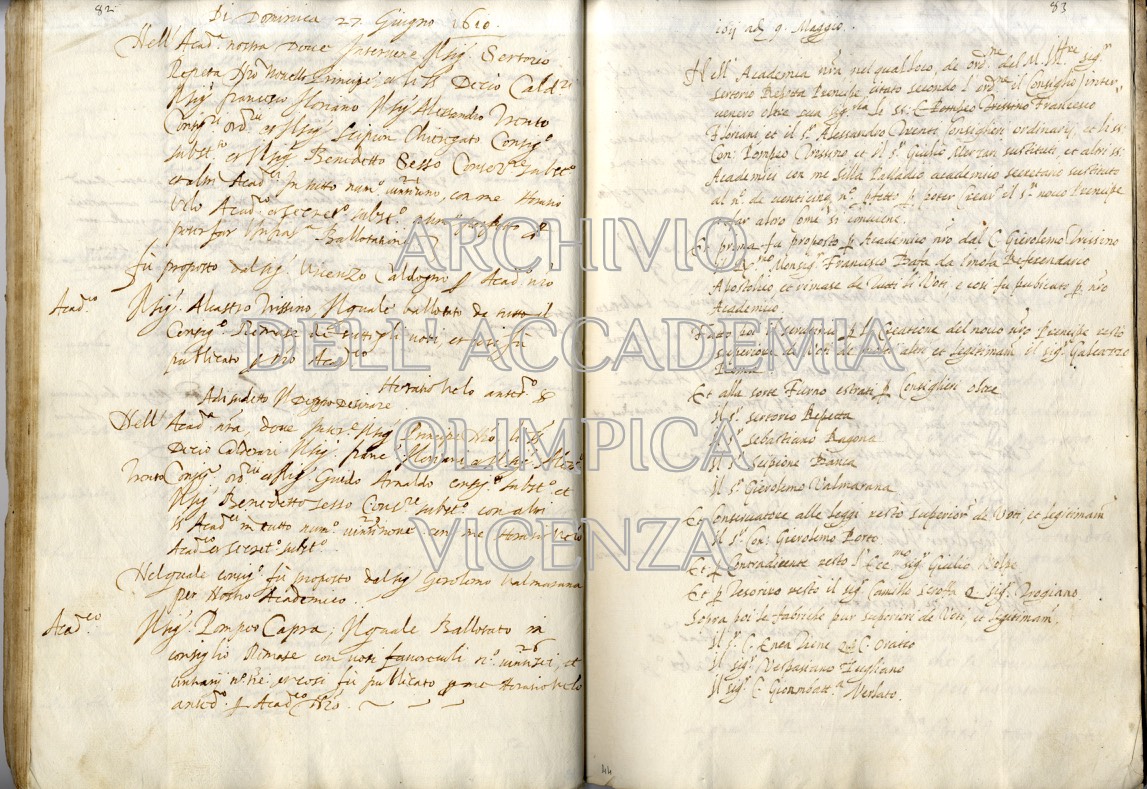 82
Di Dominica 27 Giugno 1610
Nell' Acad.a nostra Dove Intervene Il Sig.r Sertorio
Repeta Nro Principe et li SS. Decio Calderi
Il Sig.r Francesco Floriano Il Sig.r Alessandro Trento
Consig.ri ord.ri et Il Sig.r Scipion Chieregato Consig.re
subst.o et Il Sig.r Benedetto Sesso subst.o
et altri Acad.ci In tutto num.o vintiuno, con me Horatio
Velo Acad.co et secret.o subst.o
Ballotatione
Fu proposto dal Sig.r Vicenzo Caldogno p Acad.co nro
Acad.co
Il Sig.r Alcastro Trissino Il quale ballotato da tutto il
Consig.o Rimase de tutti gli voti, et così fu
publicato p nro Acad.co
Horatio Velo antd.o
Adi sudeto Il Doppo Desinare
Nell' Acad.a nra, dove Interv.e Il Sig.r Principe Nro li SS.
Decio Calderari Il Sig.r Franc.o Floriani
Trento Consig.ri ord.rii et Il Sig.r Guido Arnaldo consig.re subst.o et
Il Sig.r Benedetto Sesso subst.o con altri
SS. Acad.ci in tutto num.o vintinove con me Horatio Velo
Acad.co et secret.o subst.o
Nel quale consig.o fu proposto dal Sig.r Gerolimo Valmarana
per Nostro Academico
Acad.co
Il Sig.r Pompeo Capra; Il quale Ballotato in
consiglio Rimase con voti favorevoli n.o vintisei, et
contrari n.o tre, et così fu publicato p me Horatio Velo
antd.o p Acad.co Nro.
83
1611 adi 9. Maggio.
Nell' Academia nra nel qual loco, de ord.ne del M. Ill.tre sig.r
Sertorio Repeta Prencipe citato secondo l'ord.ne il Consiglio inter-
venero oltre sua sig.ria li ss. C. Pompeo Trissino Francesco
Floriani, et il s.r Alessandro Trente Consiglieri ordinarij, et li ss.
Con: Pompeo Trissino, et Il S.r Giulio sustituti, et altri ss.
Academici con me Silla Palladio academico secretario sustituto
al n.o de venticinq, n.o p poter crear il s.r novo Prencipe
et far altro come si conviene.
Et prima fu proposto p Academico nro dal C. Gierolemo Trissino
Il R.mo Monsig.r Francesco Prata da Imola Referendario
Apostolico, et rimase de tutti li Voti, e così fu publicato p nro
Academico
Fatto poi il scrutinio p la Creatione del novo nro Prencipe restò
superior de Voti de tutti altri et legitimam.te il sig.r Galeazzo
Et alla sorte Furno estrati p Consiglieri oltre
Il S.r Sertorio Repetta
Il S.r Sebastiano Ragona
Il S.r Scipione Banca
Il S.r Gierolemo Valmarana
Et Conservatore alle Leggi restò superior de Voti, et legitimam.te
Il S.r Con: Gierolemo Porto
Et p Contradicente restò l'Ecc.mo sig.r Giulio Belpe
Et p Tesorier restò il sig.r Camillo Scroffa sig.r Trogiano
Sopra poi le fabriche pur superiori de Voti, et legitimam.te
Il S.r C. Enea Tiene C. Oratio
Il sig.r Vespasiano Zugliano
Il sig.r C. Giovanbatt.a Verlato.
44
ARCHIVIO
DELL'ACCADEMIA
OLIMPICA
VICENZA